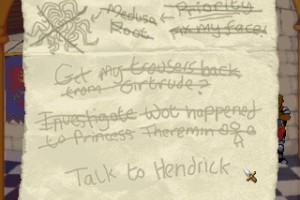 Medusa Root
Priority
Fix my face!
Get my trousers back
from Girtrude?
Investigate wot happened
to Princess Theremin
Talk to Hendrick